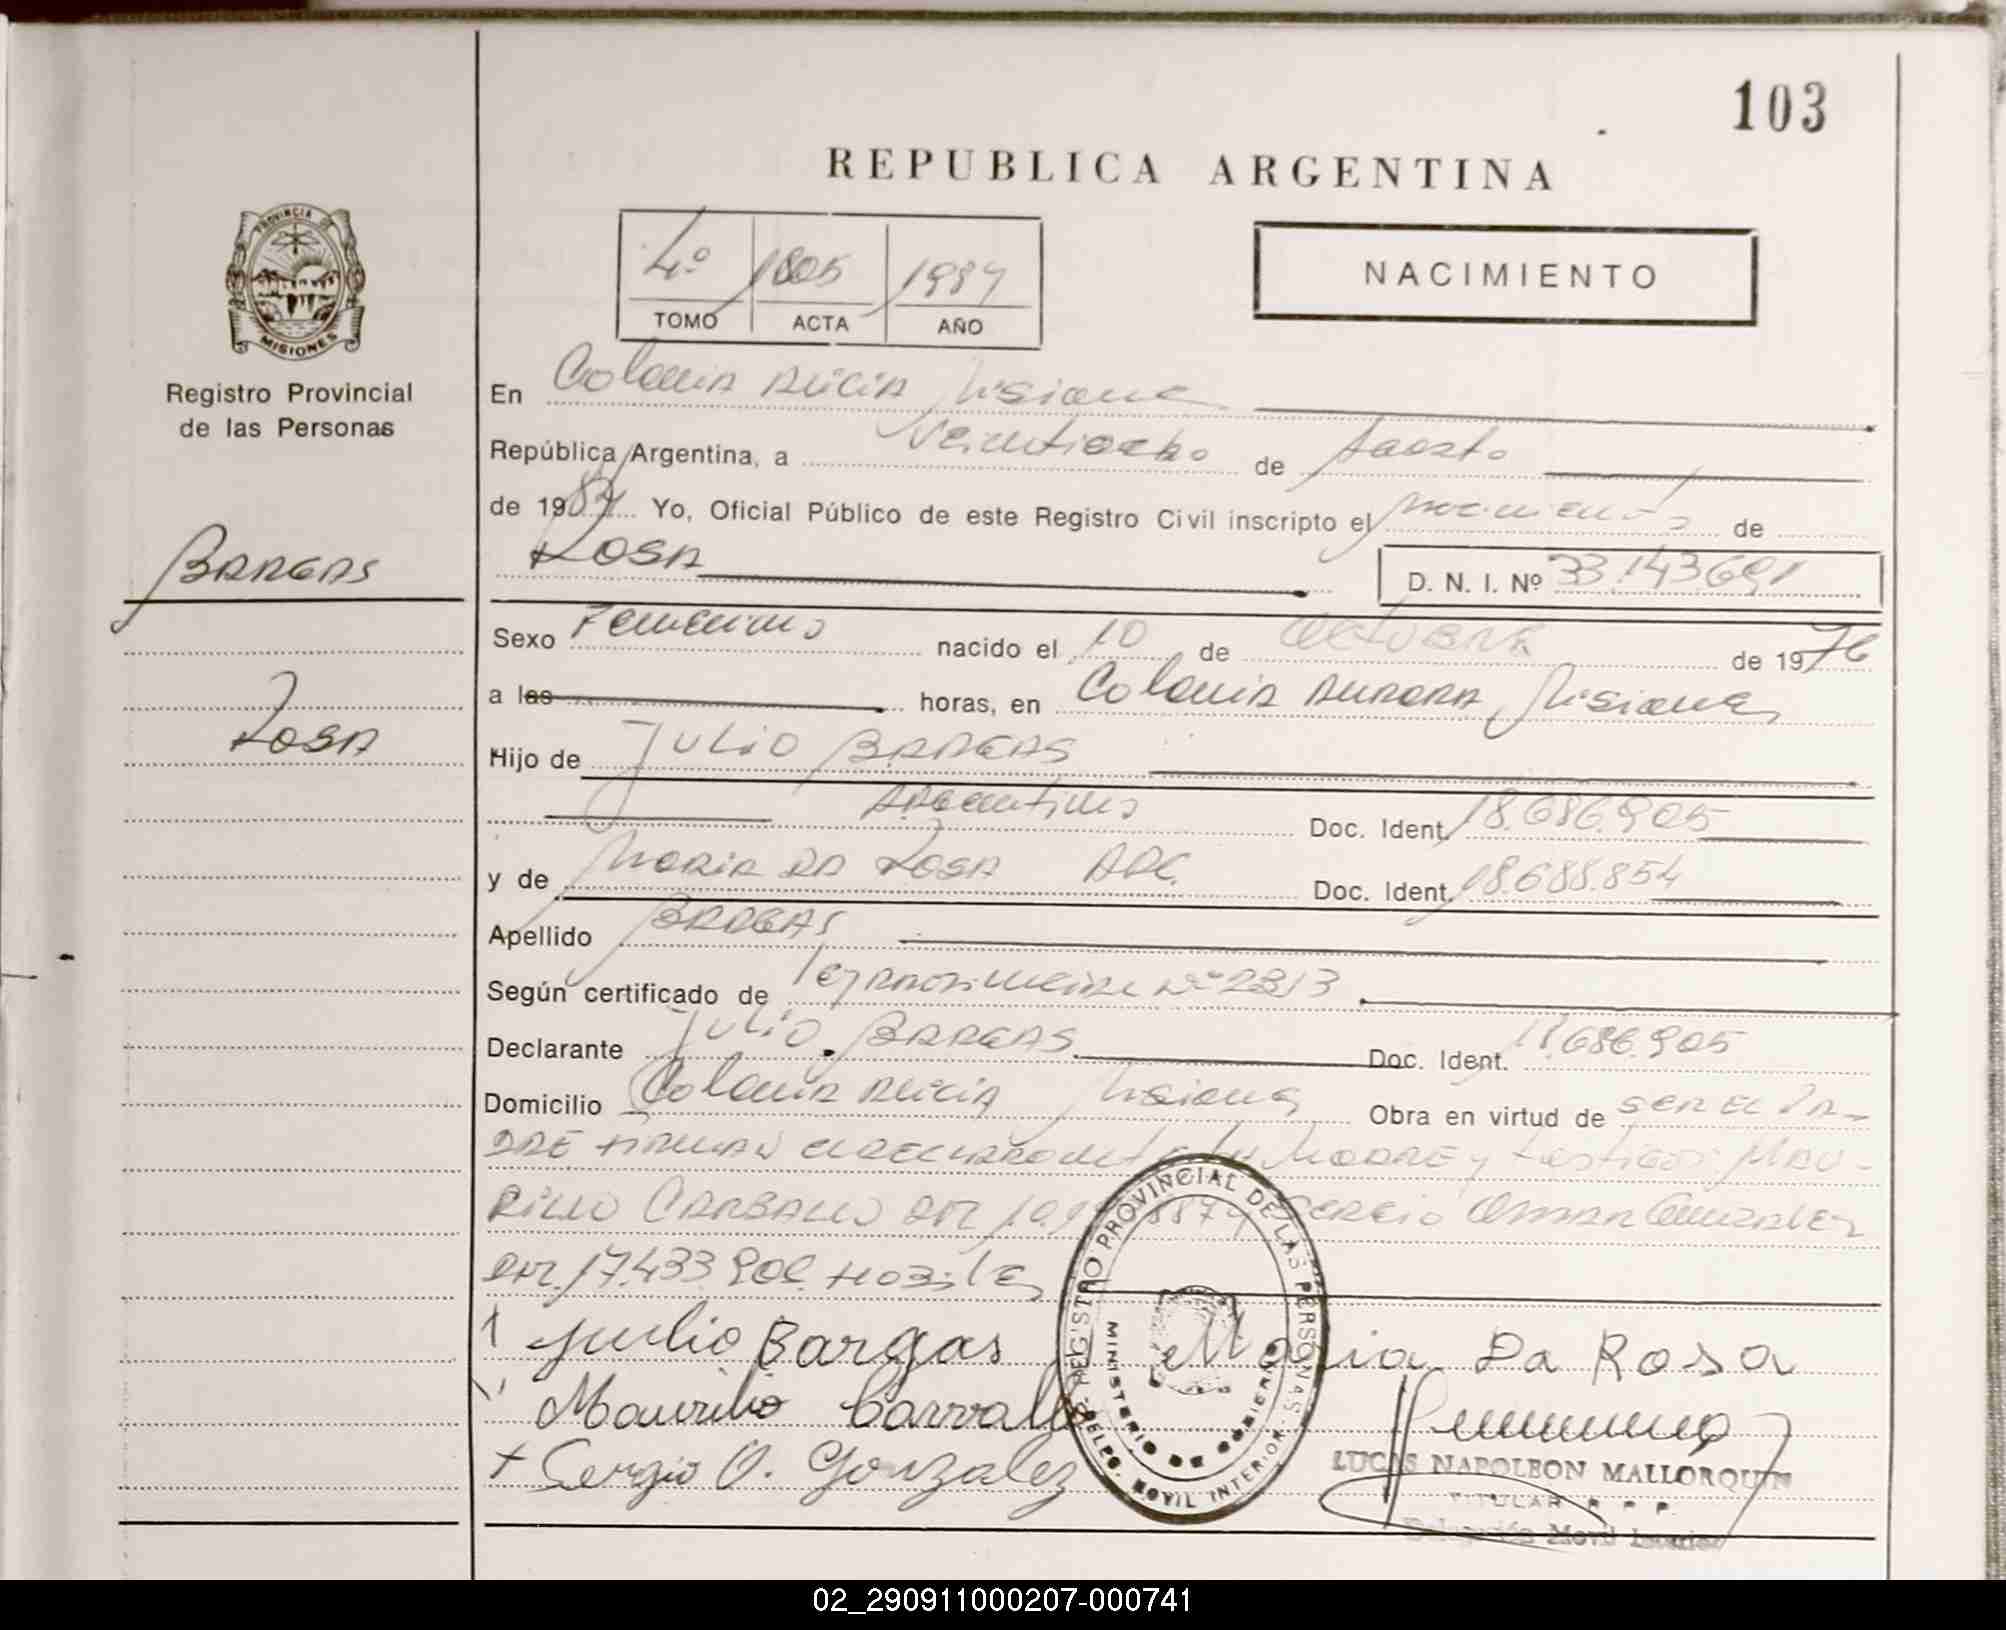 103
REPUBLICA ARGENTINA
PROVINCIA DE
MISIONES
Registro Provincial
de las Personas
BARGAS
Rosa
4º 1805 1987
TOMO ACTA AÑO
NACIMIENTO
En Colonia Alicia Misiones
República Argentina, a Veintiocho de Agosto
de 1987 Yo, Oficial Público de este Registro Civil inscripto el nacimiento de
Rosa D. N. I. Nº 33.143.691
Sexo Femenino nacido el 10 de octubre de 1976
a las horas, en Colonia Aurora Misiones
Hijo de Julio BARGAS
Argentino Doc. Ident. 18.686.905
y de Maria DA Rosa ARG. Doc. Ident. 18.688.854
Apellido BARGAS
Según certificado de Nº 2313
Declarante Julio BARGAS Doc. Ident. 18.686.905
Domicilio Colonia Alicia Misiones Obra en virtud de ser el PA-
DRE firman el declarante la Madre y testigos: MAU-
RILIO CARBALLO DNI Sergio Omar Gonzalez
DNI. 17.433.902
Julio Bargas Maria Da Rosa
Maurilio Carvallo
+ Sergio O. Gonzalez
REGISTRO PROVINCIAL DE LAS PERSONAS
MINISTERIO DE GOBIERNO
DELEG. MOVIL INTERIOR
LUCAS NAPOLEON MALLORQUIN
TITULAR R. P. P.
Delegación Movil Interior
02_290911000207-000741